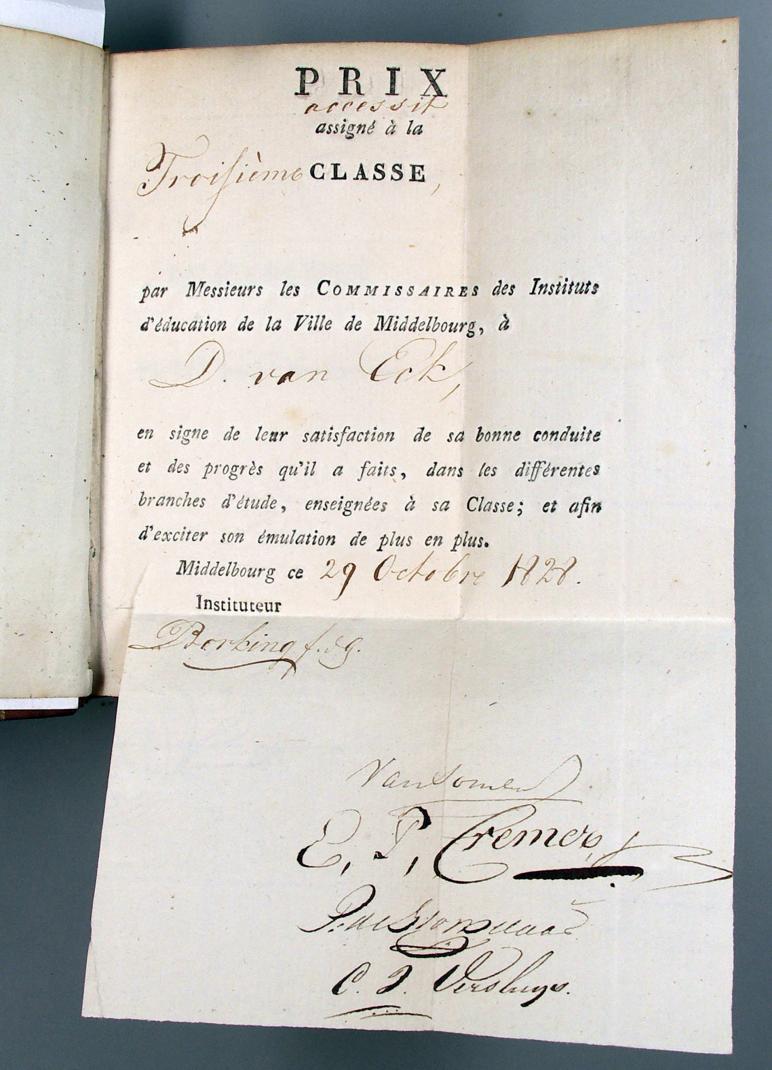 PRIX
accessit
assigné à la
Troisième CLASSE,
par Messieurs les COMMISSAIRES des Instituts
d'éducation de la Ville de Middelbourg, à
D. van Eck,
en signe de leur satisfaction de sa bonne conduite
et des progrès qu'il a faits, dans les différentes
branches d'étude, enseignées à sa Classe; et afin
d'exciter son émulation de plus en plus.
Middelbourg ce 29 Octobre 1828.
Instituteur
van Somer
E, P, Cremer
C. J. Versluys.